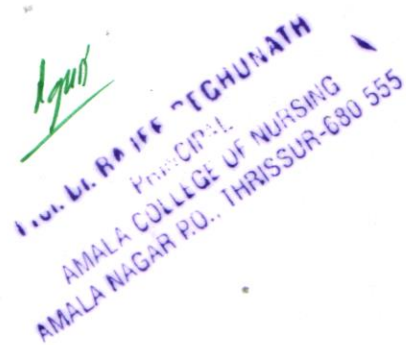 REGHUNATH
PRINCIPAL
AMALA COLLEGE OF NURSING
AMALA NAGAR P.O., THRISSUR-680 555